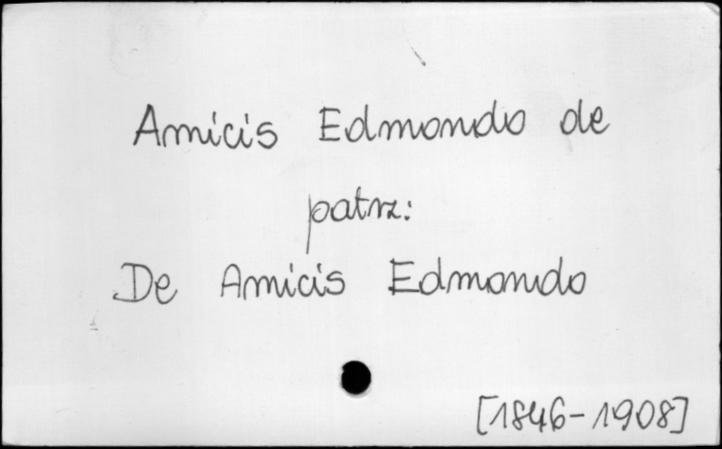 Amicis Edmondo de
patrz:
De Amicis Edmondo
[1846-1908]